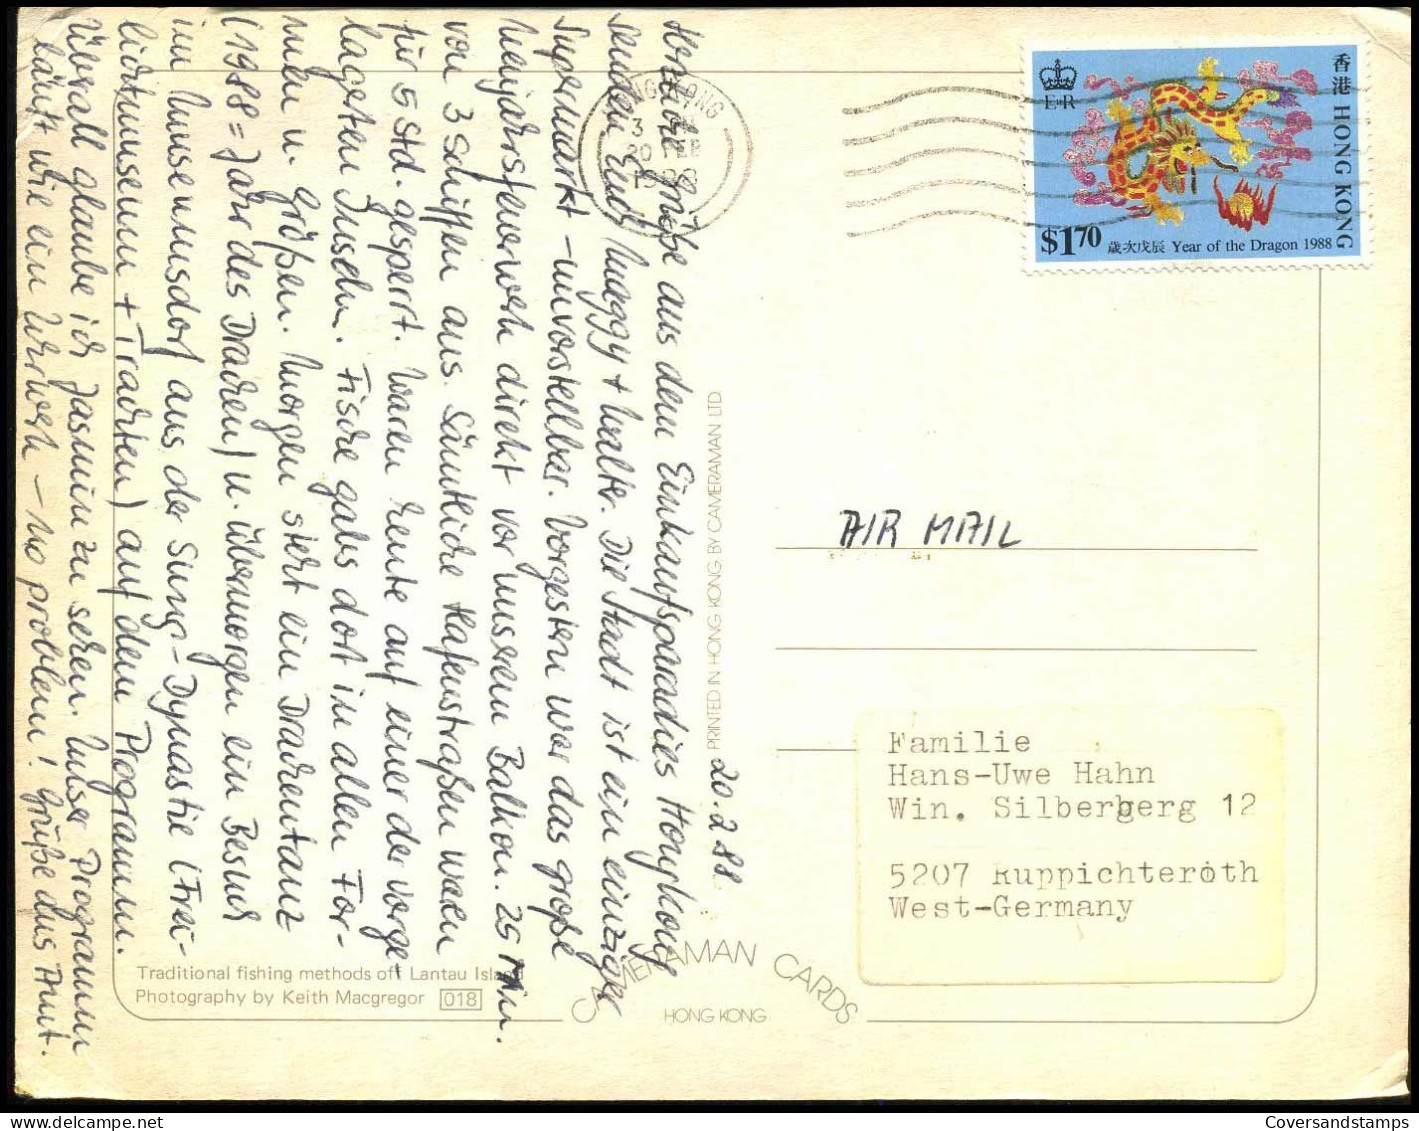 20.2.88
Herzliche Grüße aus dem Einkaufsparadies Hongkong
senden Euch Muggy + Walter. Die Stadt ist ein einziger
Supermarkt – unvorstellbar. Vorgestern war das große
Neujahrsfeuerwerk direkt vor unserem Balkon. 25 Min.
von 3 Schiffen aus. Sämtliche Hafenstraßen waren
für 5 Std. gesperrt. Waren heute auf einer der vorge-
lagerten Inseln. Fische gabs dort in allen For-
men u. Größen. Morgen steht ein Drachentanz
(1988 = Jahr des Drachen) u. übermorgen ein Besuch
im Museumsdorf aus der Sung-Dynastie (Frei-
lichtmuseum + Trachten) auf dem Programm.
Überall glaube ich Jasmin zu sehen. Unser Programm
läuft wie ein Uhrwerk – no problem! Grüße ans Amt.
HONG KONG
3
20 FEB
1988
E II R
香港 HONG KONG
$1.70
歲次戊辰 Year of the Dragon 1988
AIR MAIL
PRINTED IN HONG KONG BY CAMERAMAN LTD.
Familie
Hans-Uwe Hahn
Win. Silberberg 12
5207 Ruppichteroth
West-Germany
Traditional fishing methods off Lantau Island
Photography by Keith Macgregor 018
CAMERAMAN CARDS
HONG KONG
Coversandstamps